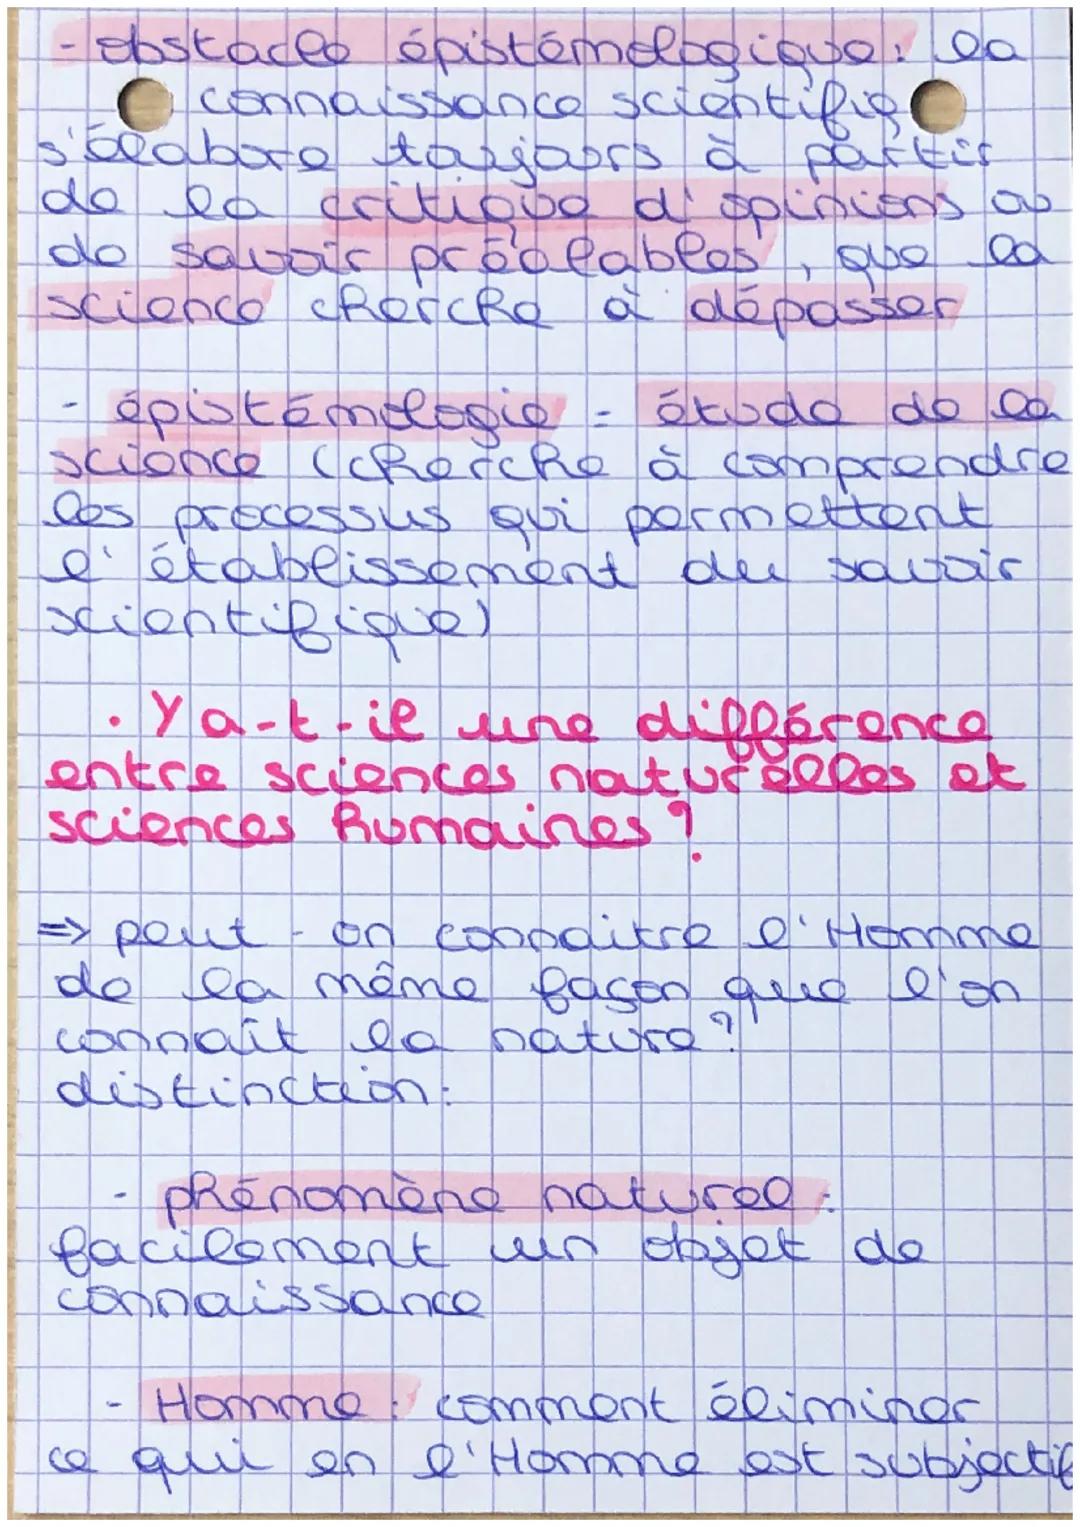 - obstacle épistémologique : la
connaissance scientifiq
s'élabore toujours à partir
de la critique d'opinions ou
de savoir préalables, que la
science cherche à dépasser
- épistémologie = étude de la
science (cherche à comprendre
les processus qui permettent
l'établissement du savoir
scientifique)
. Y a-t-il une différence
entre sciences naturelles et
sciences humaines ?
=> peut-on connaitre l'Homme
de la même façon que l'on
connaît la nature ?
distinction :
- phénomène naturel :
facilement un objet de
connaissance
- Homme : comment éliminer
ce qui en l'Homme est subjectif